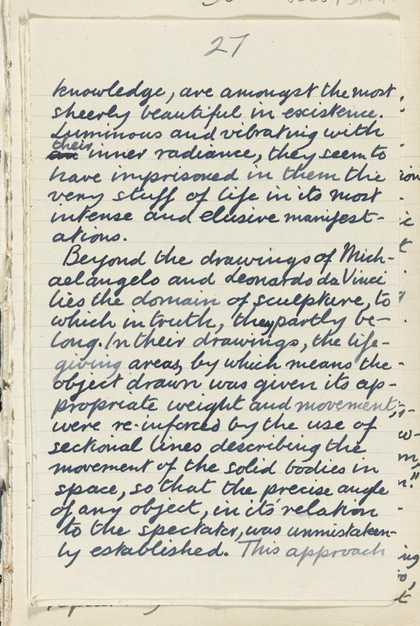 27
knowledge, are amongst the most
sheerly beautiful in existence.
Luminous and vibrating with
their inner radiance, they seem to
have imprisoned in them the
very stuff of life in its most
intense and elusive manifest-
ations.
Beyond the drawings of Mich-
aelangelo and Leonardo da Vinci
lies the domain of sculpture, to
which in truth, they partly be-
long. In their drawings, the life-
giving areas, by which means the
object drawn was given its ap-
propriate weight and movement,
were re-inforced by the use of
sectional lines describing the
movement of the solid bodies in
space, so that the precise angle
of any object, in its relation
to the spectator, was unmistaken-
ly established. This approach